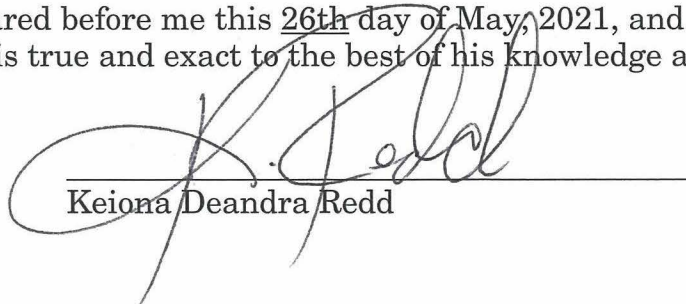 ared before me this 26th day of May, 2021, and
is true and exact to the best of his knowledge a
K. Redd
Keiona Deandra Redd